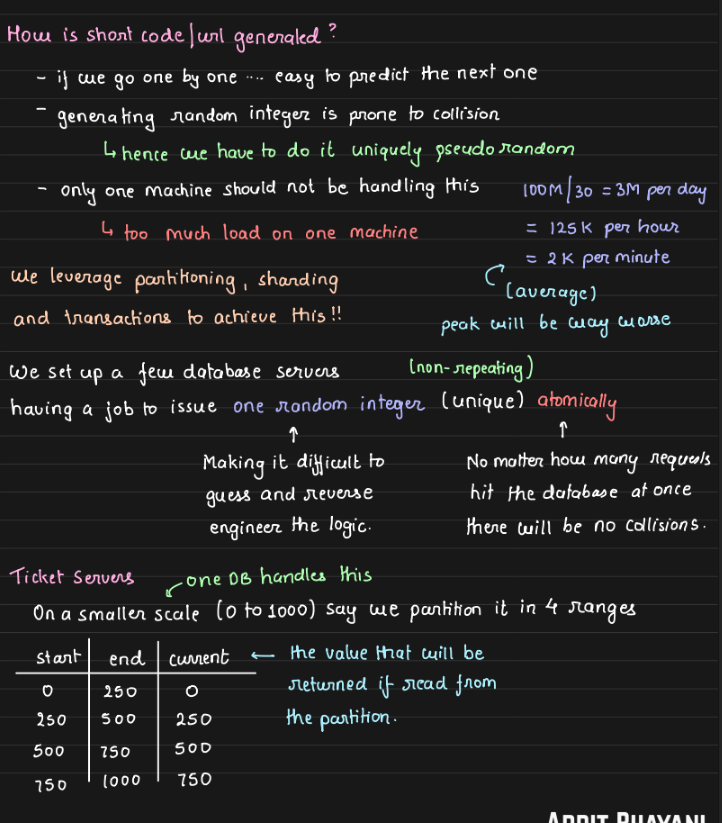 How is short code/url generated?
- if we go one by one .... easy to predict the next one
- generating random integer is prone to collision
↳ hence we have to do it uniquely pseudorandom
- only one machine should not be handling this
↳ too much load on one machine
100M/30 = 3M per day
= 125K per hour
= 2K per minute
(average)
peak will be way worse
We leverage partitioning, sharding
and transactions to achieve this!!
We set up a few database servers
having a job to issue one random integer (unique) atomically
(non-repeating)
Making it difficult to
guess and reverse
engineer the logic.
No matter how many requests
hit the database at once
there will be no collisions.
Ticket Servers
one DB handles this
On a smaller scale (0 to 1000) say we partition it in 4 ranges
start end current ← the value that will be
returned if read from
the partition.
0 250 0
250 500 250
500 750 500
750 1000 750
ARPIT BHAYANI